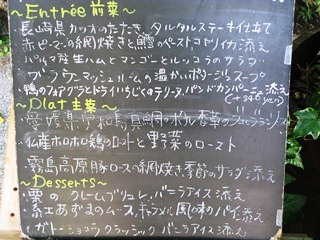 ～Entrée 前菜～
・長崎県カツオのたたき、タルタルステーキ仕立て
赤ピーマンの網焼きと鱈のペースト ヤリイカ添え
パルマ産生ハムとマンゴーとルッコラのサラダ
ブラウンマッシュルームの温かいポタージュスープ
鴨のフォアグラとドライいちじくのテリーヌ、パンドカンパーニュ添え
～Plat 主菜～
愛媛県宇和島真鯛のポワレ 香草
仏産ホロホロ鶏のロースト と 野菜のロースト
・霧島高原豚ロースの網焼き 季節のサラダ添え
～Desserts～
・栗のクレームブリュレ、バニラアイス添え
・紅あずまのムース、キャラメル風味のパイ添え
・ガトーショコラクラッシック バニラアイス添え